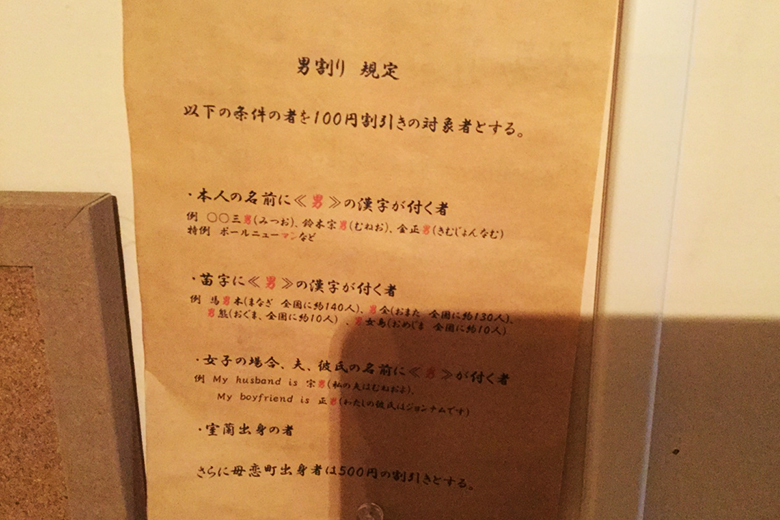 男割り 規定
以下の条件の者を100円割引きの対象者とする。
・本人の名前に≪男≫の漢字が付く者
例 〇〇三男(みつお)、鈴木宗男(むねお)、金正男(きむじょんなむ)
特例 ポールニューマンなど
・苗字に≪男≫の漢字が付く者
例 馬男木(まなぎ 全国に約140人)、男全(おまた 全国に約130人)、
男熊(おぐま、全国に約10人)、男女島(おめじま 全国に約10人)
・女子の場合、夫、彼氏の名前に≪男≫が付く者
例 My husband is 宗男(私の夫はむねおよ)、
My boyfriend is 正男(わたしの彼氏はジョンナムです)
・室蘭出身の者
さらに母恋町出身者は500円の割引きとする。